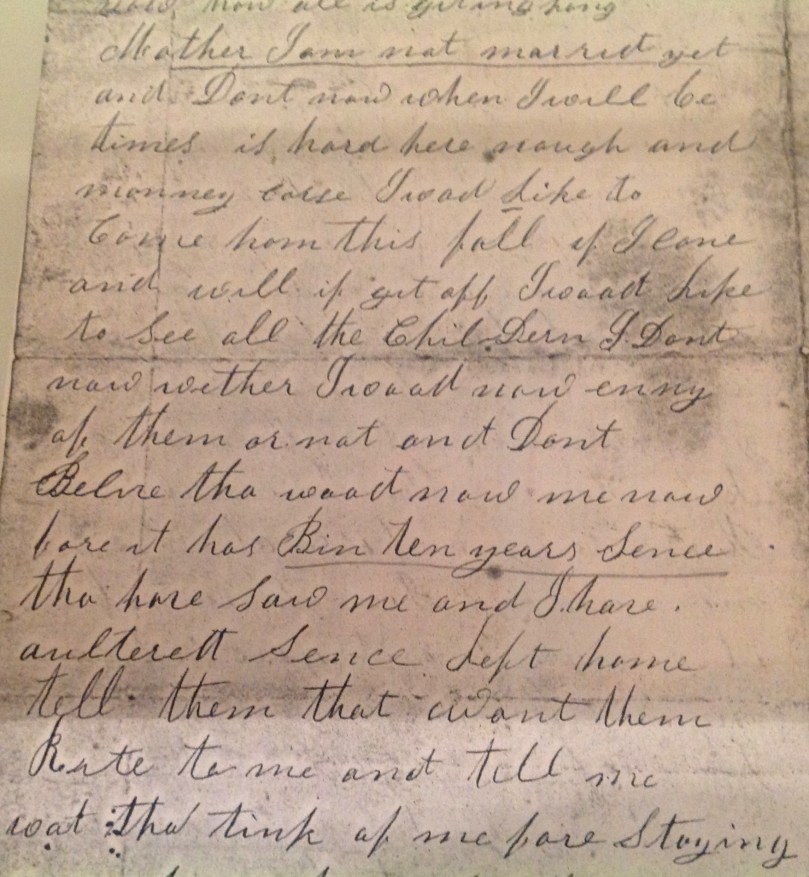 now how all is giting hong
Mother I am not marriet yet
and Dont now when I will be
times is hard here nough and
monney carse I woad Like to
Come hom this fall if I cane
and will if git off I woaad Like
to See all the Chil Dern I Dont
now wether I woaad now enny
of them or not and Dont
Belve tha woad now me now
fore it has Bin ten years Sence
tha have Saw me and I have.
aulterett Sence Left home
tell them that awant them
Rite to me and tell me
wat tha tink of me fore Staying